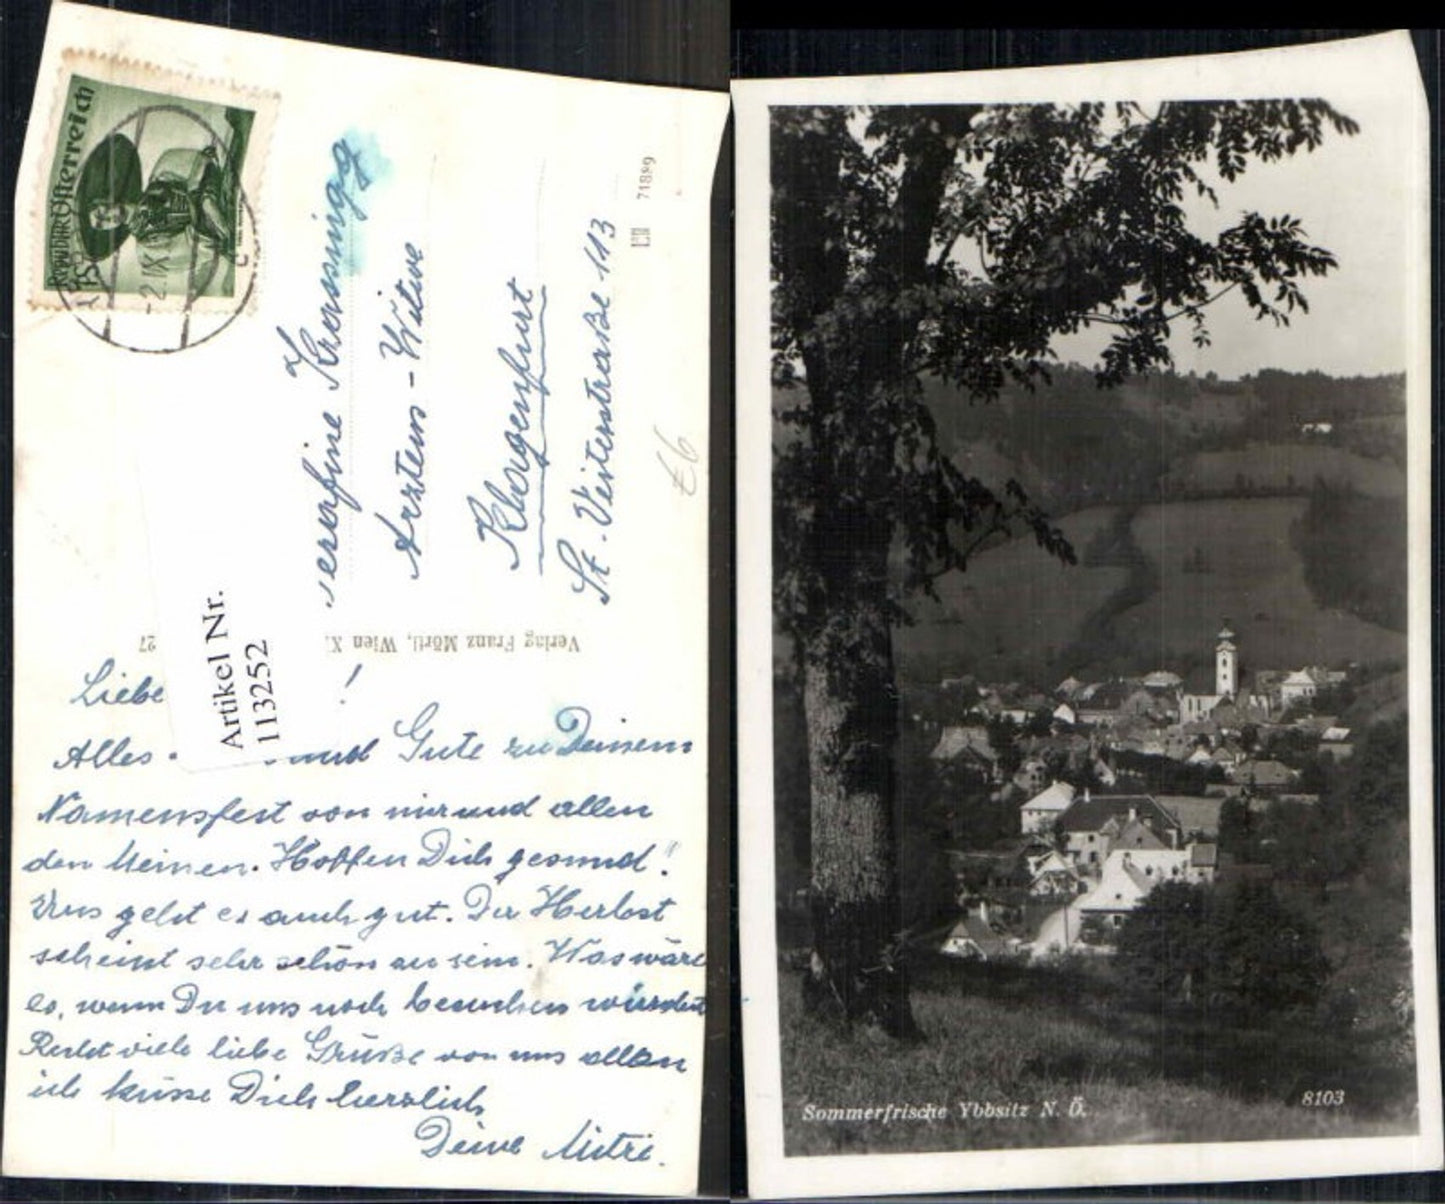 Republik Österreich
2. IX
Serafine Krassnigg
Arztens-Witwe
Klagenfurt
St. Veiterstraße 113
71889
Verlag Franz Mörtl, Wien X
27
Artikel Nr.
113252
Liebe !
Alles und Gute zu Deinem
Namensfest von mir und allen
den Meinen. Hoffen Dich gesund!
Uns geht es auch gut. Der Herbst
scheint sehr schön zu sein. Was wäre
es, wenn Du uns noch besuchen würdest
Recht viele liebe Grüße von uns allen
ich küsse Dich herzlich
Deine Mitzi.
Sommerfrische Ybbsitz N. Ö.
8103